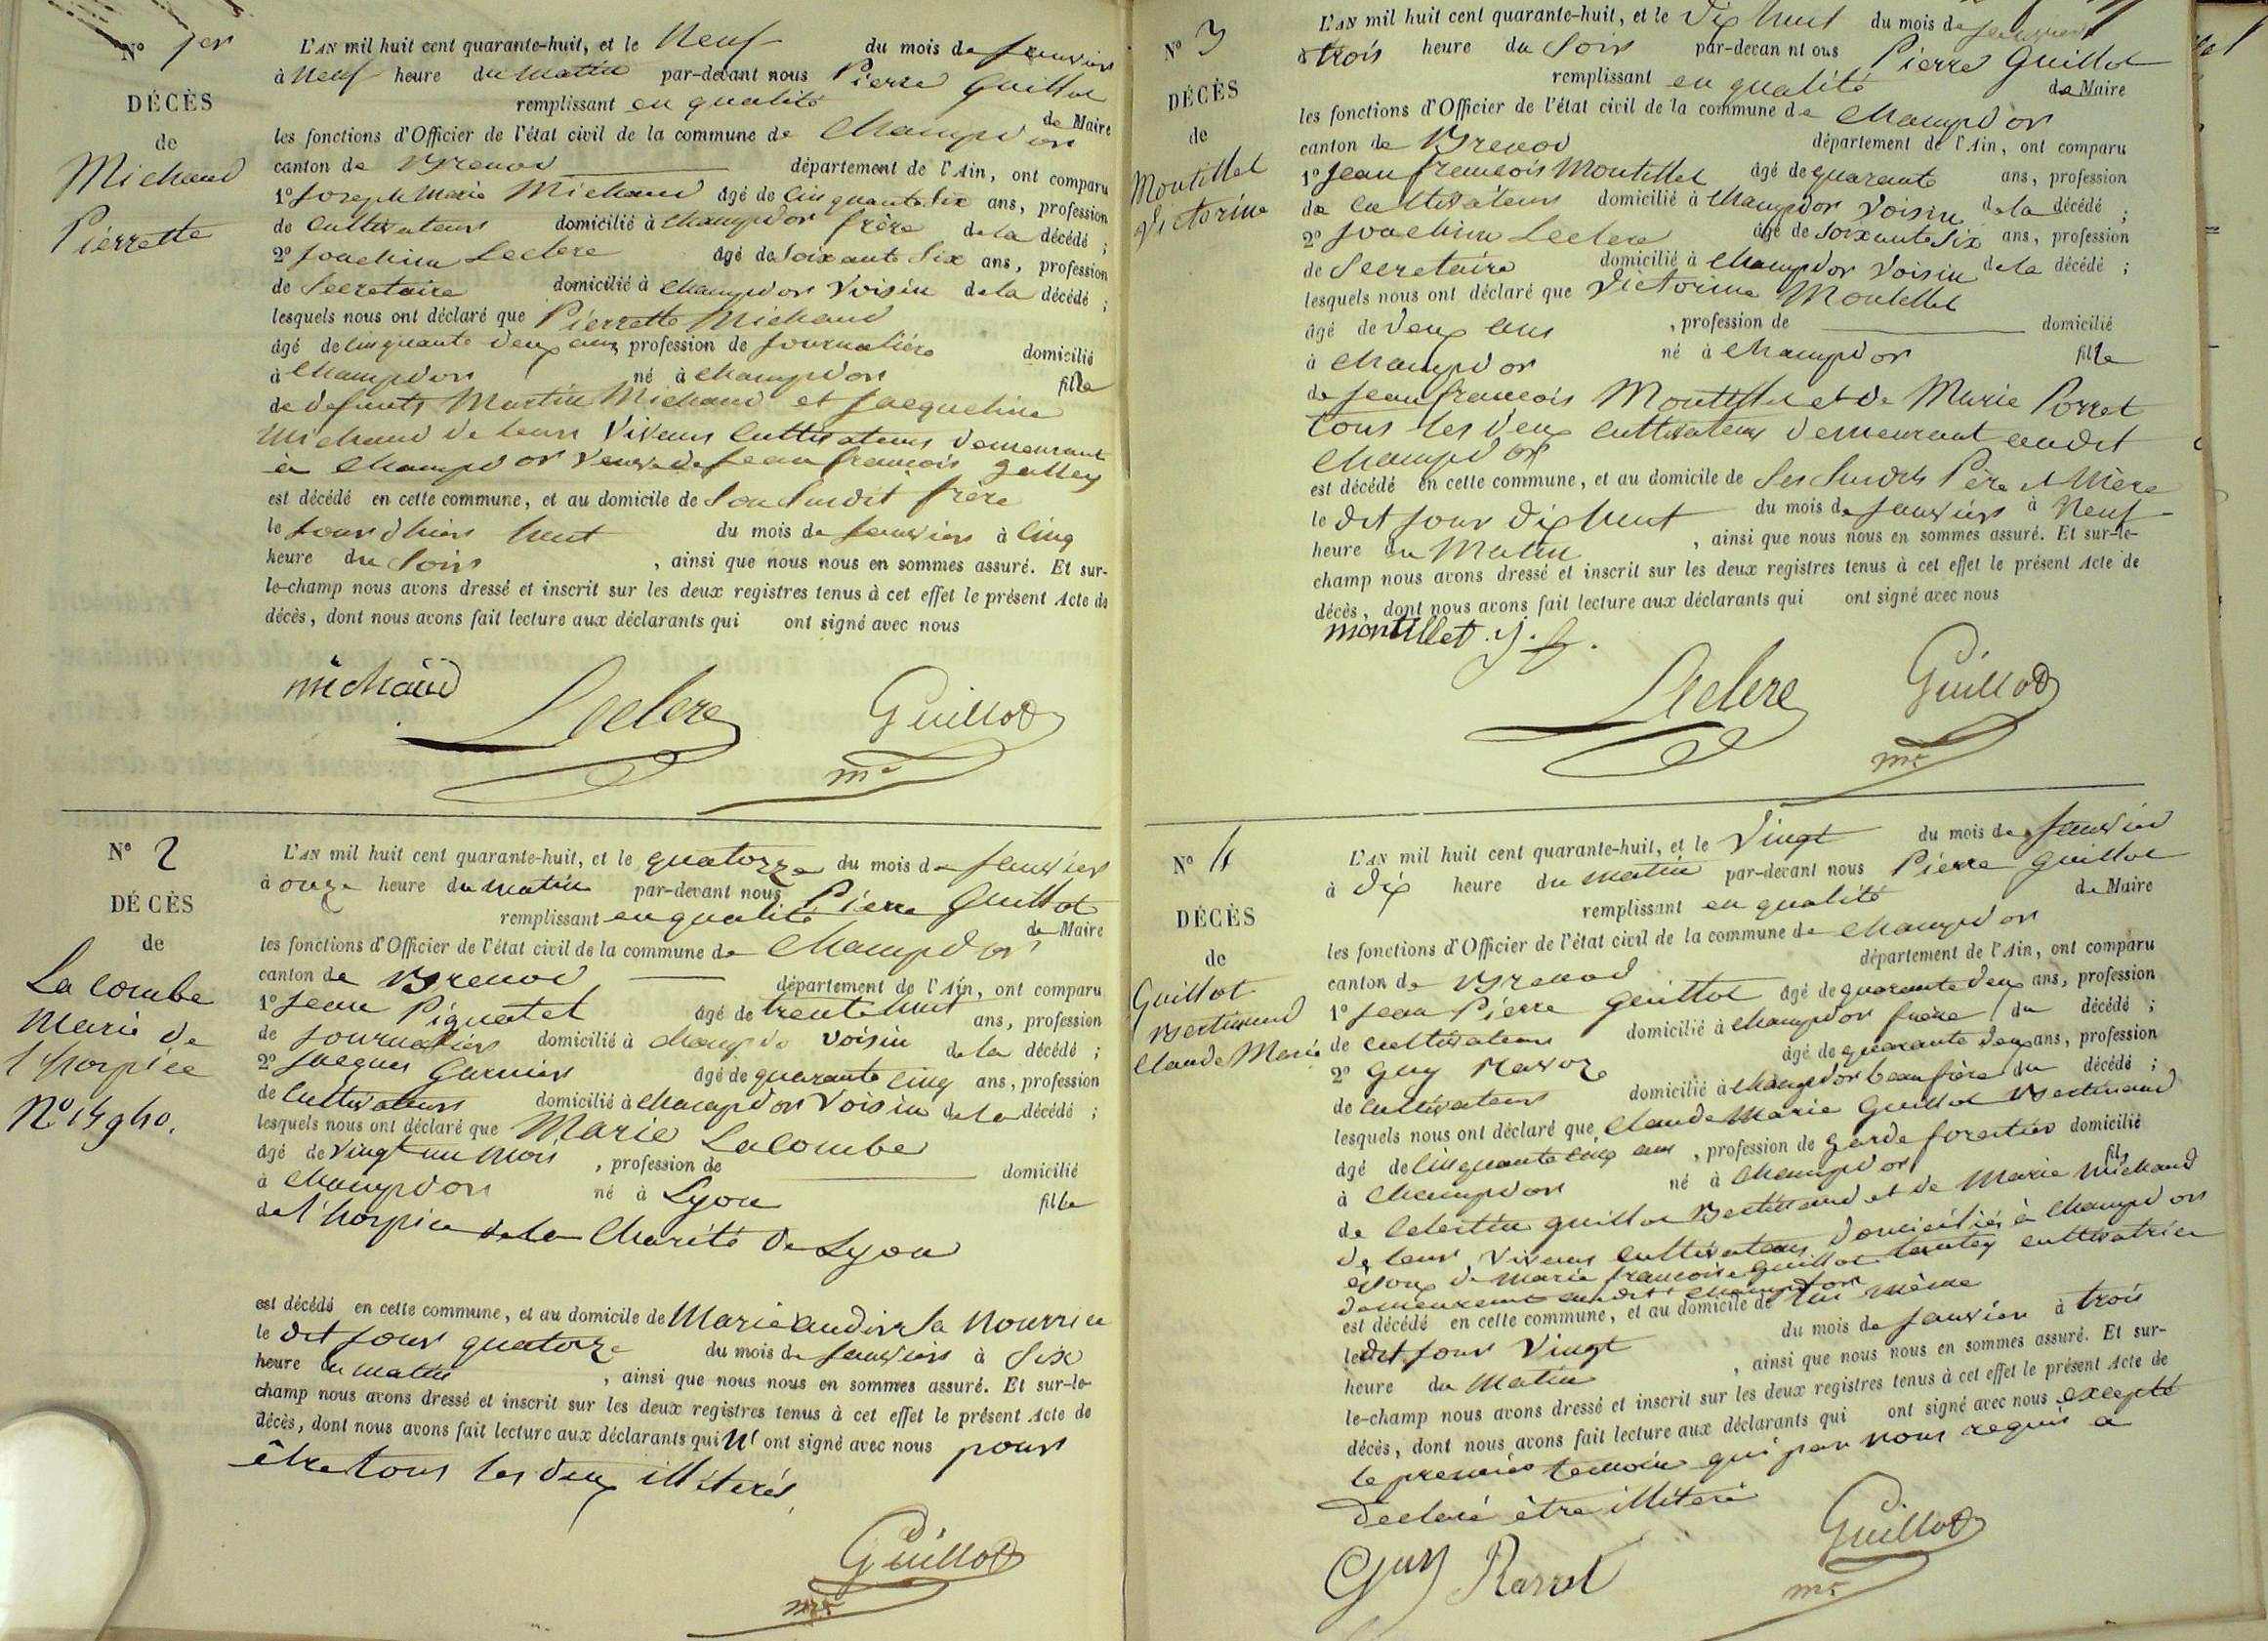 N° 1er
DÉCÈS
de
Michaud
Pierrette
L'AN mil huit cent quarante-huit, et le Neuf du mois de Janvier
à Neuf heure du matin par-devant nous Pierre Guillot
remplissant en qualité de Maire
les fonctions d'Officier de l'état civil de la commune de Champdor
canton de Brenod département de l'Ain, ont comparu
1° Joseph Marie Michaud âgé de Cinquante Six ans, profession
de Cultivateur domicilié à Champdor frère de la décédé ;
2° Joachim Leclere âgé de Soixante Six ans, profession
de Secretaire domicilié à Champdor Voisin de la décédé ;
lesquels nous ont déclaré que Pierrette Michaud
âgé de Cinquante deux ans, profession de Journalière domicilié
à Champdor né à Champdor fille
de defunts Martin Michaud et Jacqueline
Michaud de leurs Vivans Cultivateurs demeurant
à Champdor Veuve de Jean françois Gallez
est décédé en cette commune, et au domicile de Son Surdit frère
le Jour d'hier huit du mois de Janvier à Cinq
heure du Soir , ainsi que nous nous en sommes assuré. Et sur-
le-champ nous avons dressé et inscrit sur les deux registres tenus à cet effet le présent Acte de
décès, dont nous avons fait lecture aux déclarants qui ont signé avec nous
michaud Leclere Guillot
mre
N° 2
DÉCÈS
de
Lacombe
Marie de
l'hospice
N° 14940.
L'AN mil huit cent quarante-huit, et le quatorze du mois de Janvier
à onze heure du matin par-devant nous Pierre Guillot
remplissant en qualité de Maire
les fonctions d'Officier de l'état civil de la commune de Champdor
canton de Brenod département de l'Ain, ont comparu
1° Jean Piquatet âgé de trente huit ans, profession
de Journalier domicilié à Champdor voisin de la décédé ;
2° Jacques Garnier âgé de quarante Cinq ans, profession
de Cultivateur domicilié à Champdor Voisin de la décédé ;
lesquels nous ont déclaré que Marie Lacombe
âgé de Vingt un Mois , profession de domicilié
à Champdor né à Lyon fille
de l'hospice de la Charité de Lyon
est décédé en cette commune, et au domicile de Marie Sa Nourrice
le dit Jour quatorze du mois de Janvier à Six
heure du matin , ainsi que nous nous en sommes assuré. Et sur-le-
champ nous avons dressé et inscrit sur les deux registres tenus à cet effet le présent Acte de
décès, dont nous avons fait lecture aux déclarants qui N' ont signé avec nous pour
être tous les deux illiterés
Guillot
mre
N° 3
DÉCÈS
de
Montillet
Victorine
L'AN mil huit cent quarante-huit, et le Dix huit du mois de Janvier
à trois heure du Soir par-devan nt ous Pierre Guillot
remplissant en qualité de Maire
les fonctions d'Officier de l'état civil de la commune de Champdor
canton de Brenod département de l'Ain, ont comparu
1° Jean françois Montillet âgé de quarante ans, profession
de Cultivateur domicilié à Champdor Voisin de la décédé ;
2° Joachim Leclere âgé de Soixante Six ans, profession
de Secretaire domicilié à Champdor Voisin de la décédé ;
lesquels nous ont déclaré que Victorine Montillet
âgé de deux ans , profession de domicilié
à Champdor né à Champdor fille
de Jean françois Montillet et de Marie Porret
tous les deux Cultivateurs demeurant audit
Champdor
est décédé en cette commune, et au domicile de Ses Surdits Père et Mère
le dit Jour dix huit du mois de Janvier à Neuf
heure du Matin , ainsi que nous nous en sommes assuré. Et sur-le-
champ nous avons dressé et inscrit sur les deux registres tenus à cet effet le présent Acte de
décès, dont nous avons fait lecture aux déclarants qui ont signé avec nous
montillet J. f.
Leclere Guillot
mre
N° 4
DÉCÈS
de
Guillot
Bertinand
Claude Marie
L'AN mil huit cent quarante-huit, et le Vingt du mois de Janvier
à Dix heure du matin par-devant nous Pierre Guillot
remplissant en qualité de Maire
les fonctions d'Officier de l'état civil de la commune de Champdor
canton de Brenod département de l'Ain, ont comparu
1° Jean Pierre Guillot âgé de quarante deux ans, profession
de Cultivateur domicilié à Champdor frère du décédé ;
2° Guy âgé de quarante deux ans, profession
de Cultivateur domicilié à Champdor beau frère du décédé ;
lesquels nous ont déclaré que Claude Marie Guillot Bertinand
âgé de Cinquante Cinq ans , profession de Garde forestier domicilié
à Champdor né à Champdor fils
de Celestin Guillot Bertinand et de Marie Michaud
de leurs Vivans Cultivateurs domiciliés à Champdor
époux de Marie françoise Guillot cultivatrice
demeurant audit Champdor
est décédé en cette commune, et au domicile de lui même
le dit Jour Vingt du mois de Janvier à trois
heure du Matin , ainsi que nous nous en sommes assuré. Et sur-
le-champ nous avons dressé et inscrit sur les deux registres tenus à cet effet le présent Acte de
décès, dont nous avons fait lecture aux déclarants qui ont signé avec nous excepté
le premier temoin qui par nous requis a
declaré être illiteré
Guy Ravet Guillot
mre